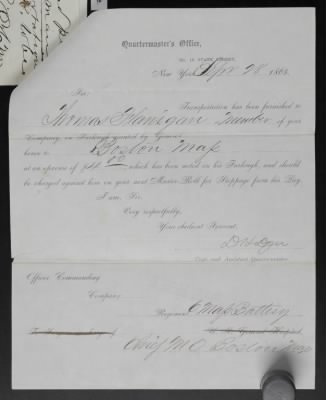 Quartermaster's Office,
No. 18 STATE STREET,
New York, Apr 28 1863.
Sir:
Transportation has been furnished to
Thomas Flanigan Member of your
Company, on Furlough granted by General
home to Boston Mass
at an expense of which has been noted on his Furlough, and should
be charged against him on your next Muster Roll for Stoppage from his Pay.
I am, Sir,
Very respectfully,
Your obedient Servant,
Capt. and Assistant Quartermaster.
Officer Commanding
Company
Regiment 6 Mass Battery
U. S. General Hospital,
Chief M O Boston Mass